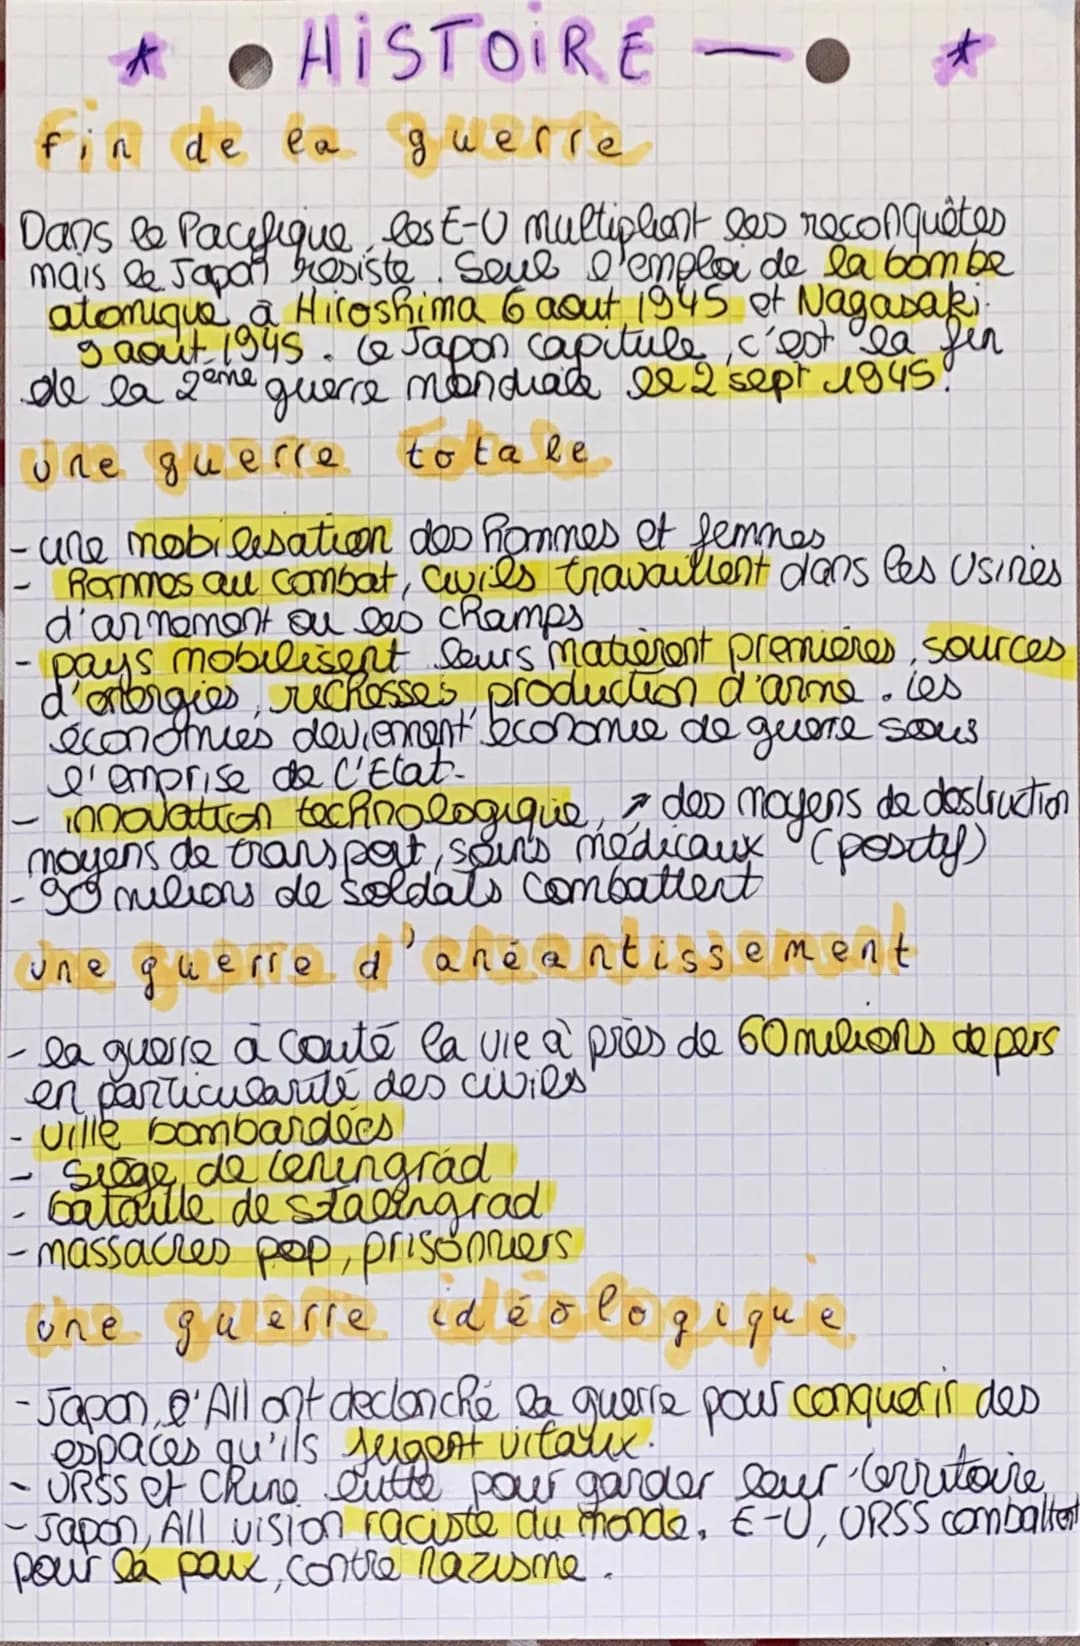 * HiSTOiRE — *
fin de la guerre
Dans le Pacifique, les E-U multiplient les reconquêtes
mais le Japon résiste. Seul l'emploi de la bombe
atomique à Hiroshima 6 aout 1945 et Nagasaki
9 aout 1945. Le Japon capitule, c'est la fin
de la 2ème guerre mondiale le 2 sept 1945.
une guerre totale
- une mobilisation des hommes et femmes
- Hommes au combat, civils travaillent dans les usines
d'armement ou les champs
- pays mobilisent leurs matièrent premières, sources
d'énergies, richesses production d'arme. les
économies deviennent économie de guerre sous
l'emprise de l'Etat.
- innovation technologique, ↗ des moyens de destruction
moyens de transport, soins médicaux (positif)
- 90 milions de soldats combattent
une guerre d'anéantissement
- la guerre à couté la vie à près de 60 milions de pers
en particularité des civils
- ville bombardées
- siège de Leningrad
- bataille de stalingrad
- massacres pop, prisonniers
une guerre idéologique
- Japon, l'All ont declenché la guerre pour conquerir des
espaces qu'ils jugent vitaux.
- URSS et Chine lutte pour garder leur territoire
- Japon, All vision raciste du monde. E-U, URSS combattent
pour la paix, contre nazisme.